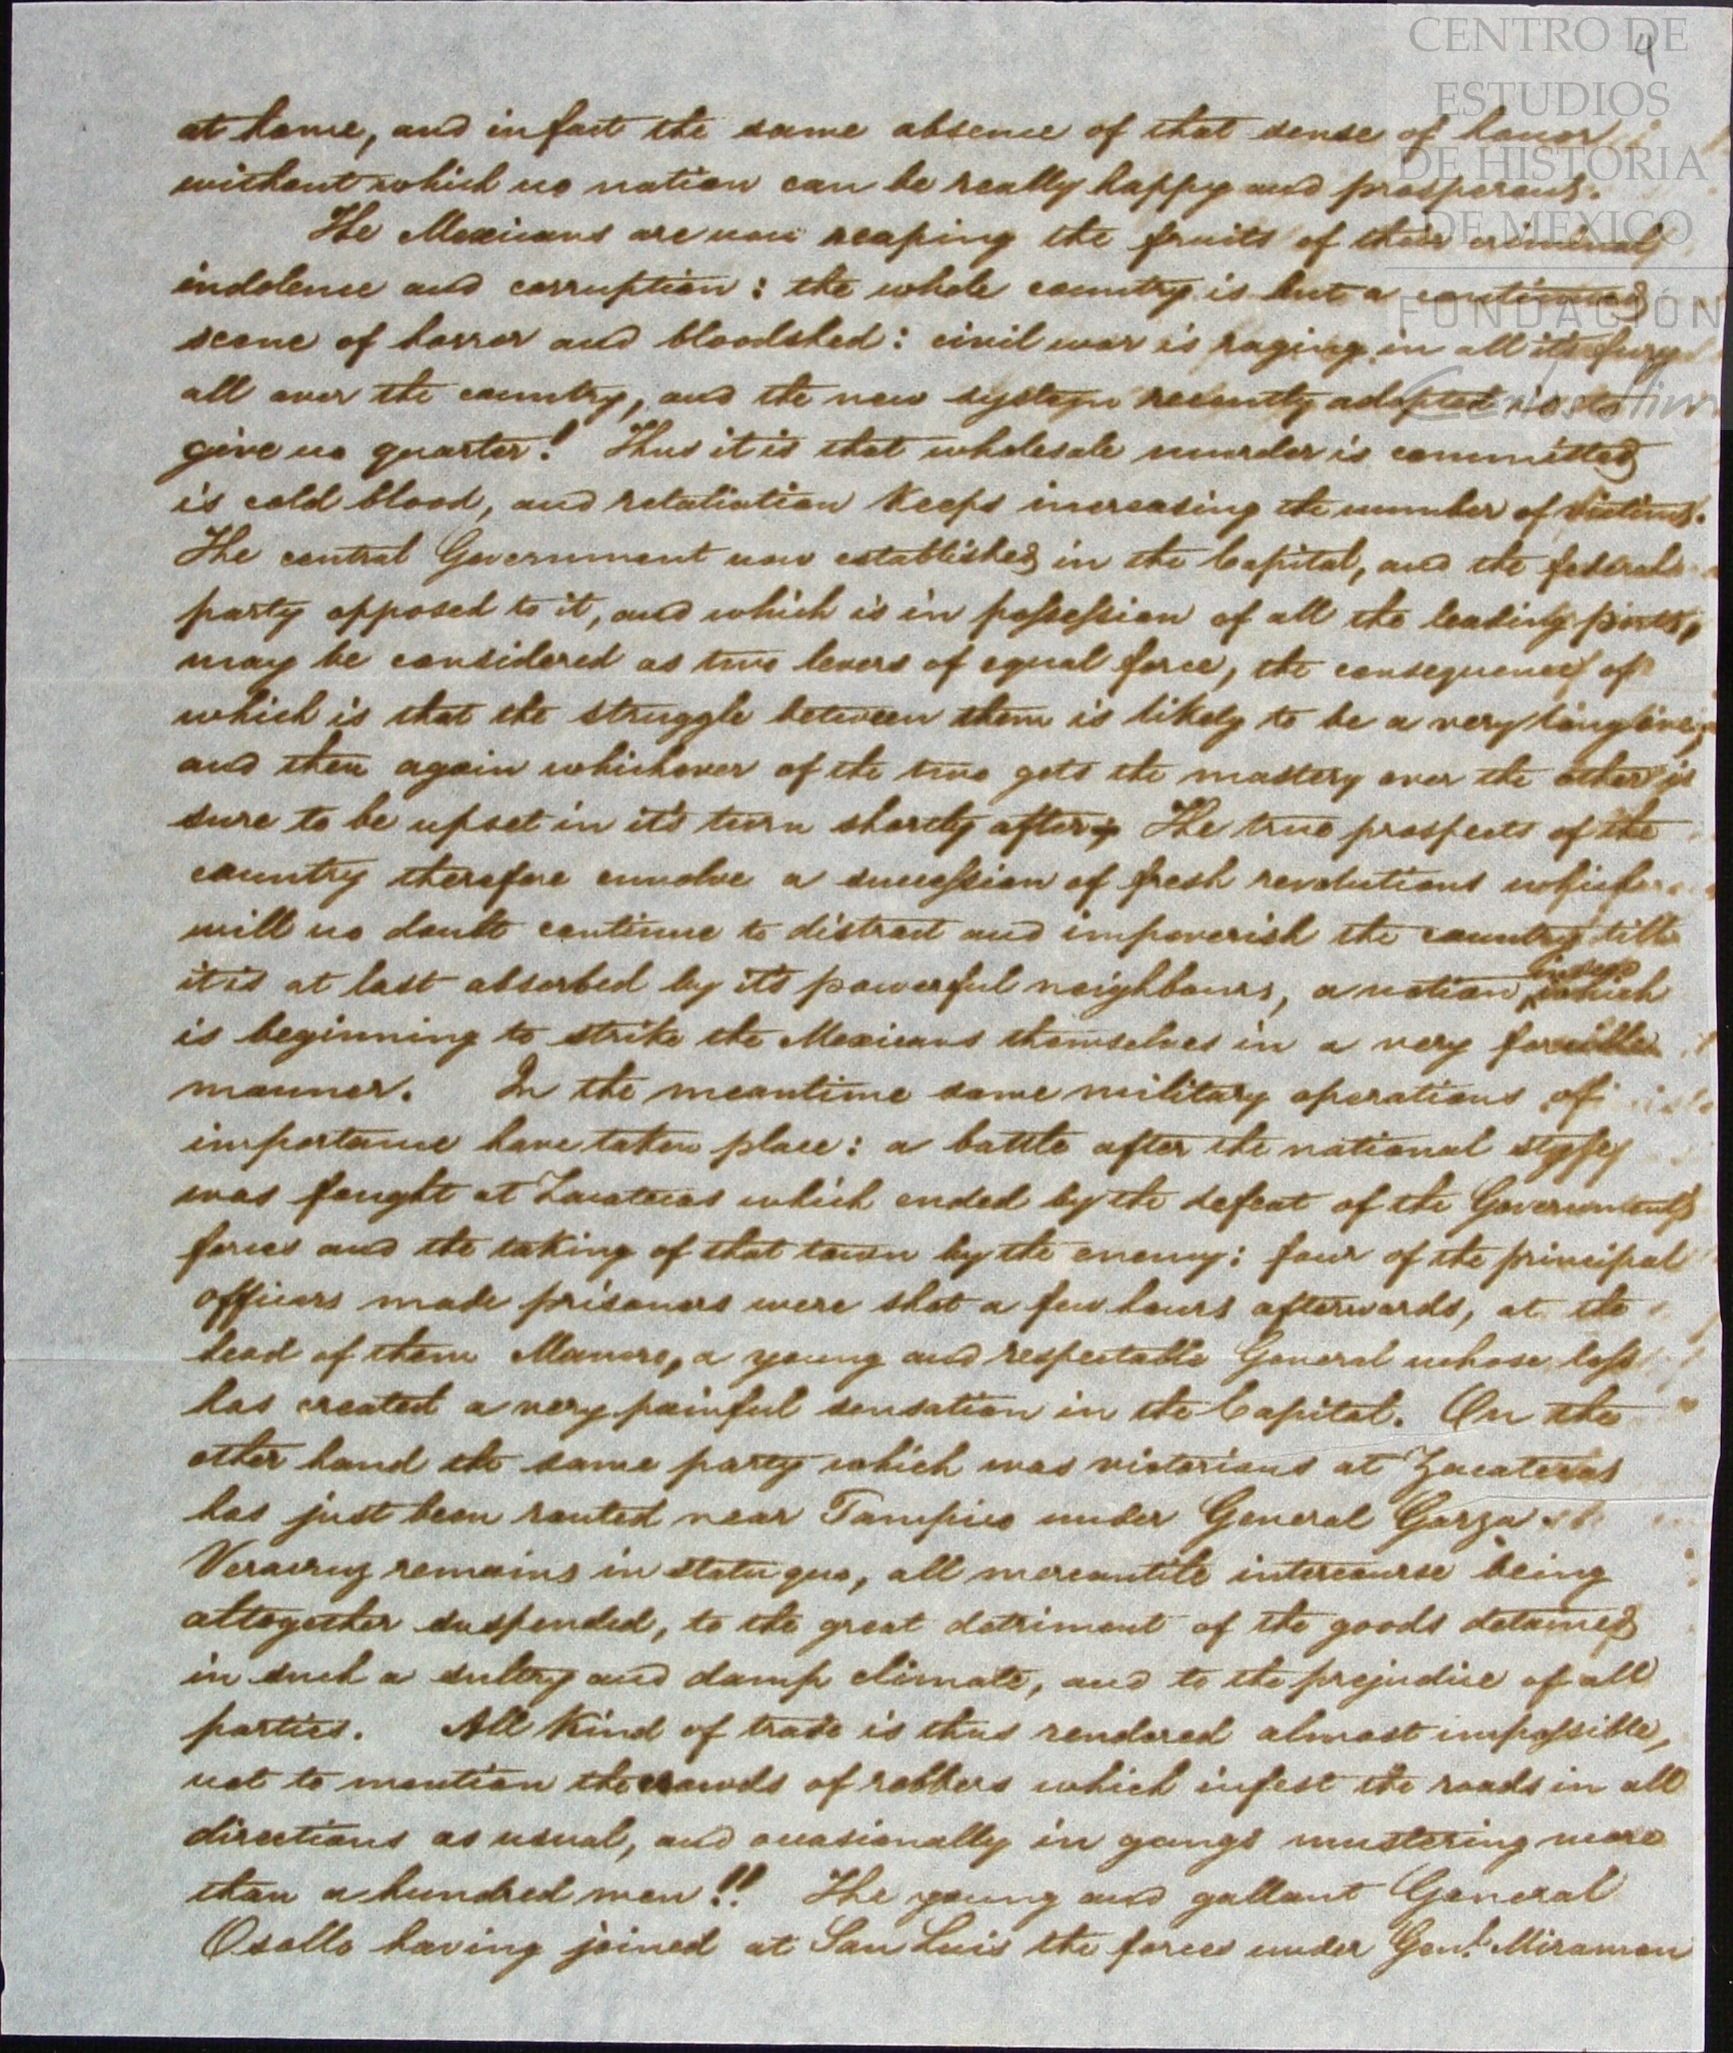 CENTRO DE
ESTUDIOS
DE HISTORIA
DE MEXICO
FUNDACIÓN
4
at home, and in fact the same absence of that sense of honor
without which no nation can be really happy and prosperous.
The Mexicans are now reaping the fruits of their criminal
indolence and corruption: the whole country is but a continued
scene of horror and bloodshed: civil war is raging in all it's fury
all over the country, and the new system recently adopted is to
give no quarter! Thus it is that wholesale murder is committed
is cold blood, and retaliation keeps increasing the number of victims.
The central Government now established in the Capital, and the federal
party opposed to it, and which is in possession of all the leading ports,
may be considered as two levers of equal force, the consequence of
which is that the struggle between them is likely to be a very long one,
and then again whichever of the two gets the mastery over the other is
sure to be upset in it's turn shortly after. The true prospects of the
country therefore envolve a succession of fresh revolutions which
will no doubt continue to distract and impoverish the country till
it is at last absorbed by it's powerful neighbours, a notion which
is beginning to strike the Mexicans themselves in a very forcible
manner. In the meantime some military operations of
importance have taken place: a battle after the national style
was fought at Zacatecas which ended by the defeat of the Government's
forces and the taking of that town by the enemy: four of the principal
officers made prisoners were shot a few hours afterwards, at the
head of them Manero, a young and respectable General whose loss
has created a very painful sensation in the Capital. On the
other hand the same party which was victorious at Zacatecas
has just been routed near Tampico under General Garza.
Veracruz remains in statu quo, all mercantile intercourse being
altogether suspended, to the great detriment of the goods detained
in such a sultry and damp climate, and to the prejudice of all
parties. All kind of trade is thus rendered almost impossible,
not to mention the crowds of robbers which infest the roads in all
directions as usual, and occasionally in gangs mustering more
than a hundred men!! The young and gallant General
Osollo having joined at San Luis the forces under Genl. Miramon